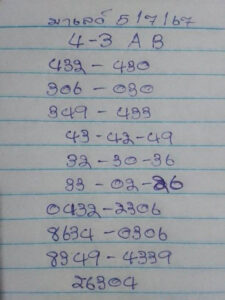 มาเลย์ 5/7/67
4-3 A B
432 - 430
306 - 030
349 - 433
43-42-49
32-30-36
33-02-26
0432-2306
8634-0306
8349-4339
26304